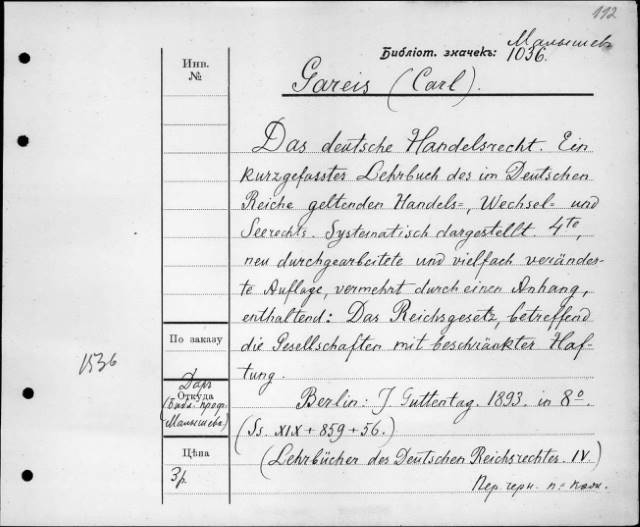 112
Малышев
Библіот. значекъ: 1036.
Инв.
№
Gareis (Carl).
Das deutsche Handelsrecht. Ein
kurzgefasster Lehrbuch des im Deutschen
Reiche geltenden Handels=, Wechsel= und
Seerechts. Systematisch dargestellt. 4te,
neu durchgearbeitete und vielfach veränder-
te Auflage, vermehrt durch einen Anhang,
enthaltend: Das Reichsgesetz, betreffend
По заказу
die Gesellschaften mit beschränkter Haf-
tung.
1536
Даръ
Откуда
(Библ. проф.
Малышева)
Berlin: J Guttentag. 1893. in 8°.
(Ss. XIX + 859 + 56.)
Цѣна
3 р.
(Lehrbücher des Deutschen Reichsrechtes. IV.)
Пер. черн. п.= кож.